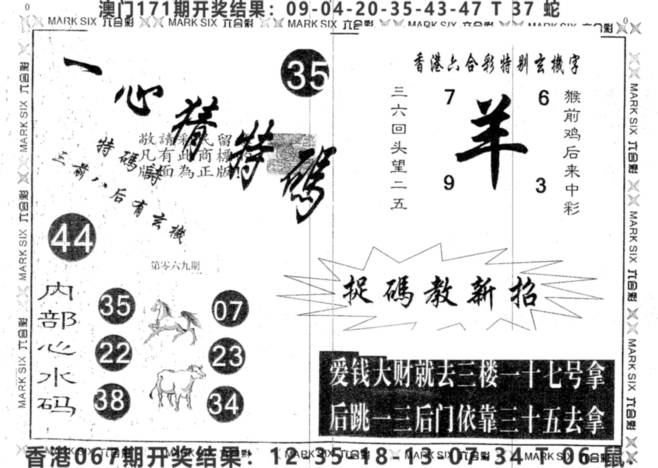 澳门171期开奖结果：09-04-20-35-43-47 T 37 蛇
MARK SIX 六合彩
一心猜特碼
35
敬請彩民留
凡有此商標
版面為正版!
特碼詩
三前八后有玄機
44
第零六九期
内部心水码
35
07
22
23
38
34
香港六合彩特别玄機字
三六回头望二五
7
6
羊
9
3
猴前鸡后来中彩
捉碼教新招
爱钱大财就去三楼一十七号拿
后跳一三后门依靠三十五去拿
香港067期开奖结果：12-35-18-13-07-34 T 06 鼠.